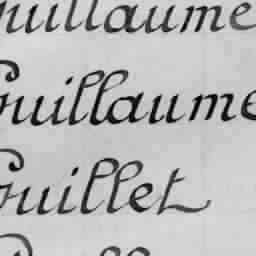 Guillaume
Guillaume
Guillet